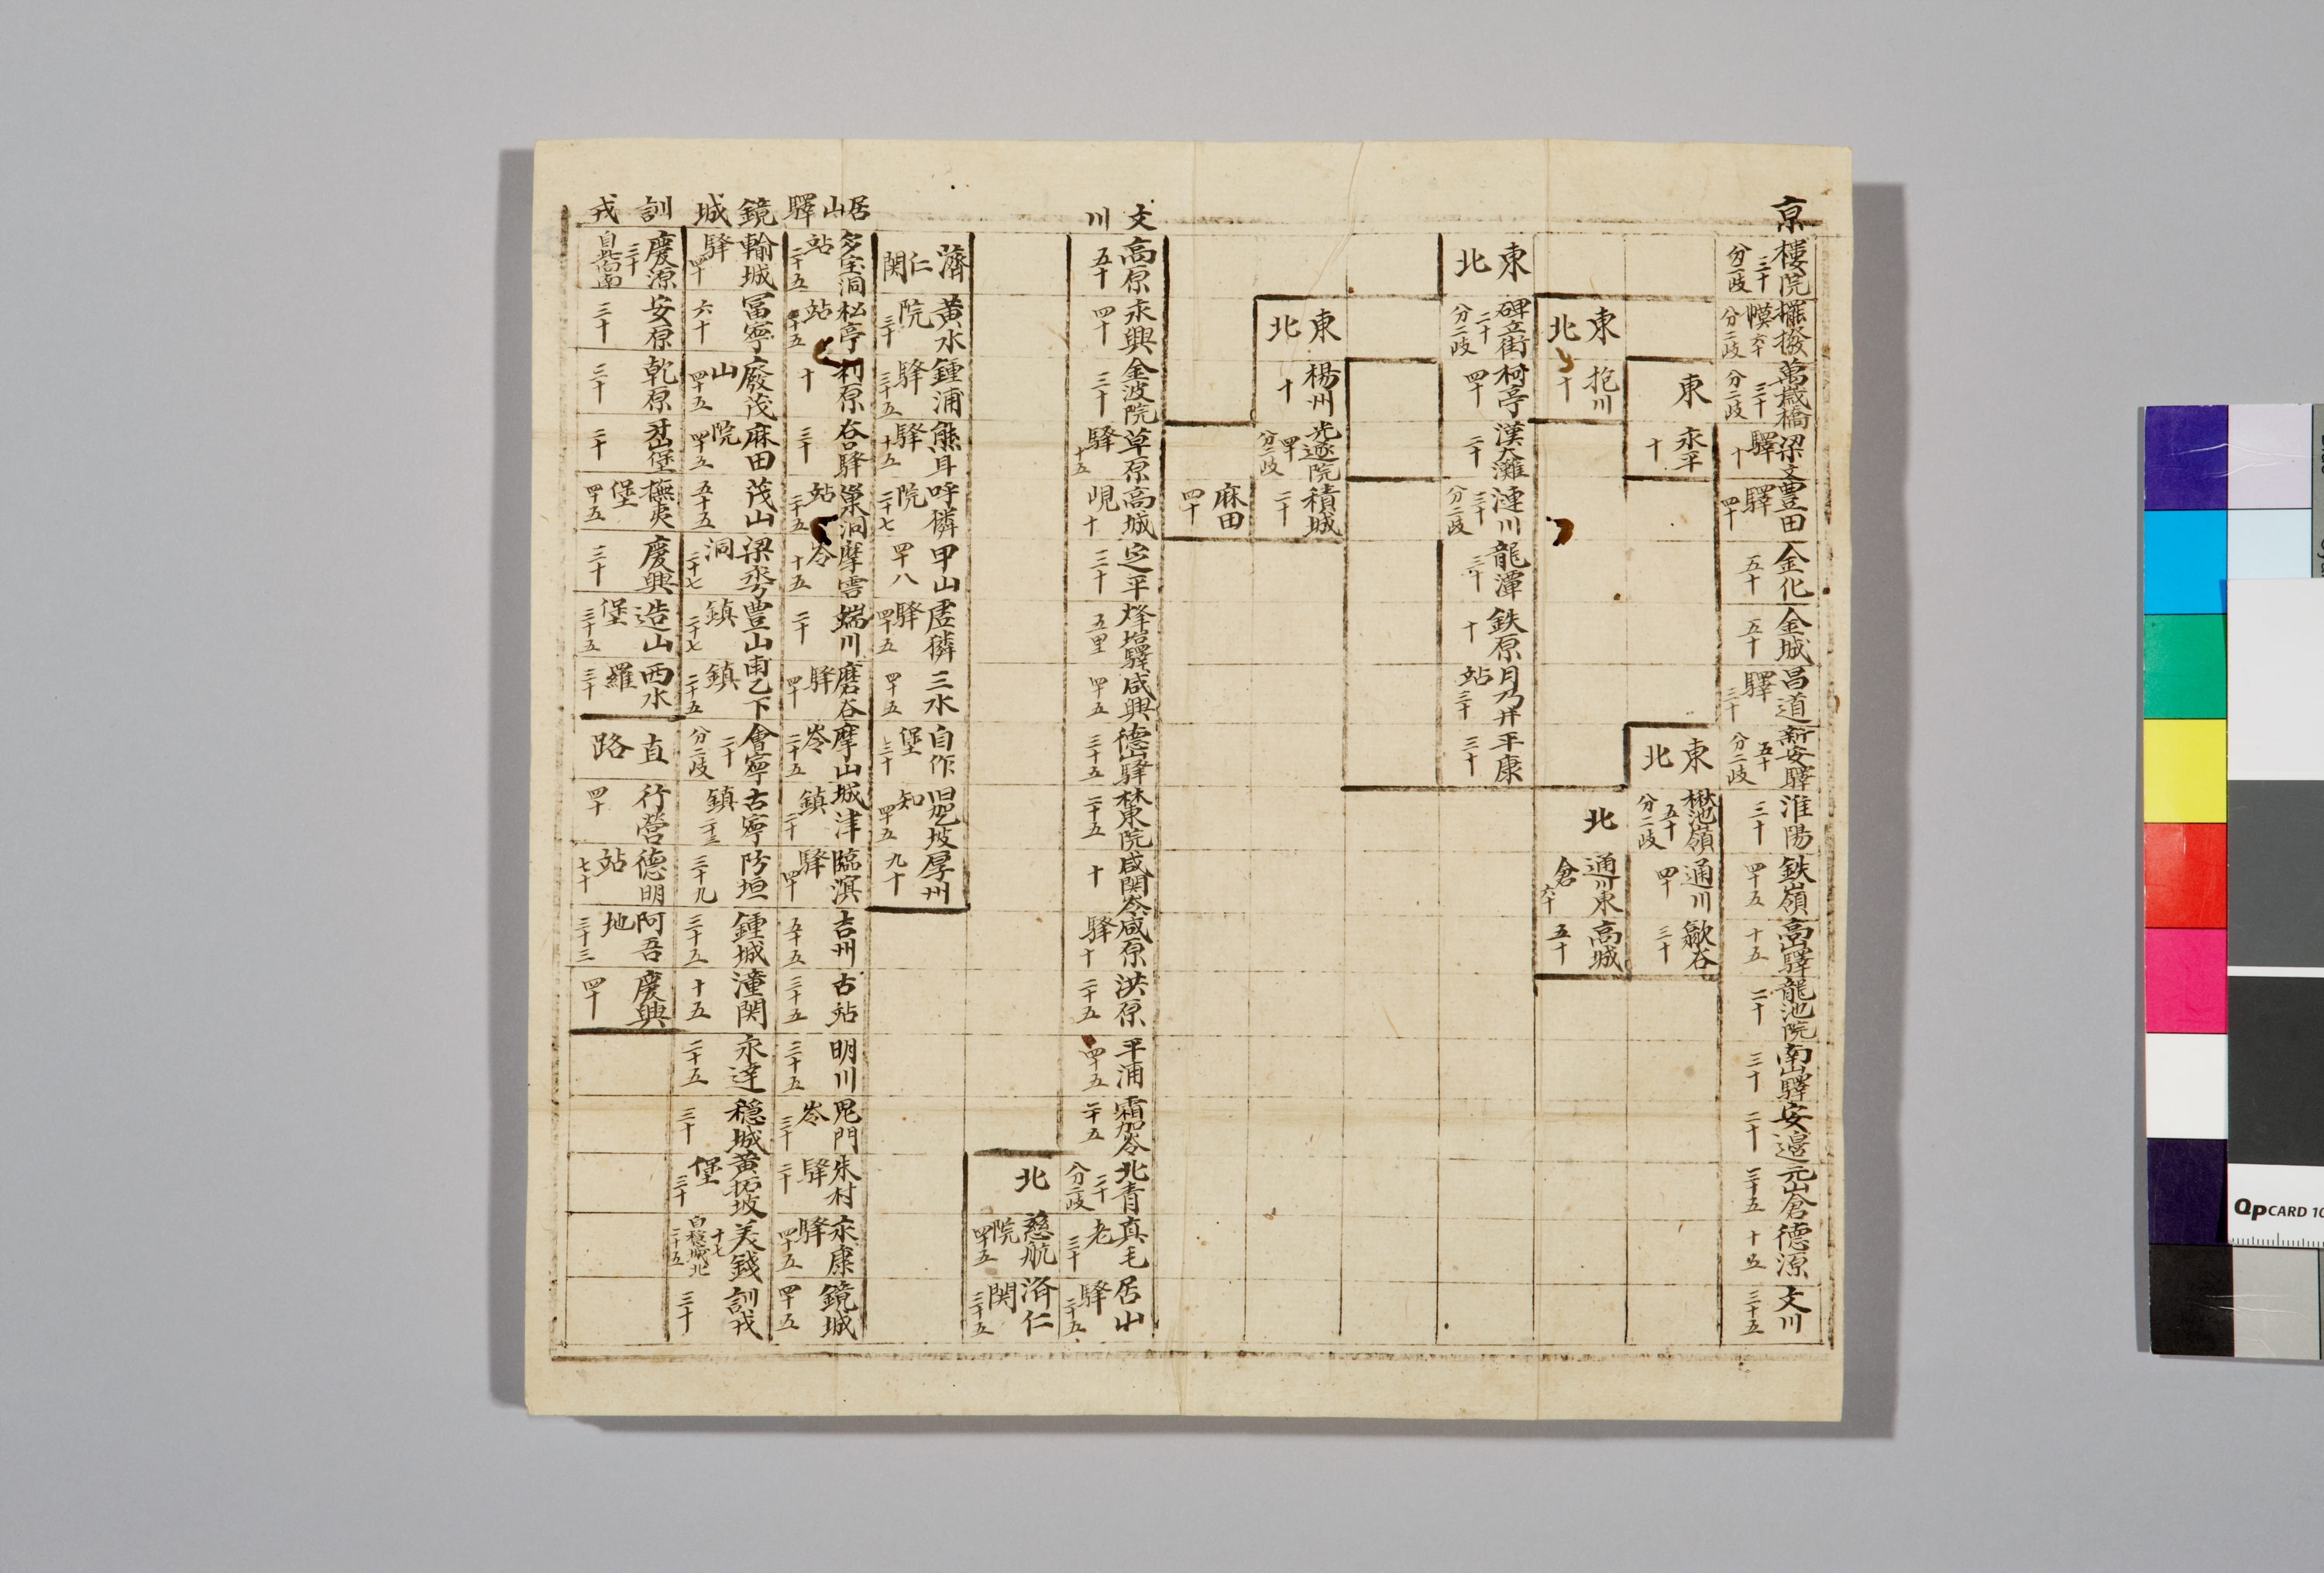 京
樓院 三十 分二岐
擺撥幕 六十 分二岐
萬歲橋 三十 分二岐
梁文驛 十
豊田驛 四十
金化 五十
金城 五十
昌道驛 三十
新安驛 五十 分二岐
淮陽 三十
鉄嶺 四十五
高山驛 十五
龍池院 二十
南山驛 三十
安邊 二十
元山倉 二十五
德源 十五
文川 三十五
東
永平 十
東北
楸池嶺 五十 分二岐
通川 四十
歙谷 三十
東北
抱川 十
北
通川東倉 六十
高城 五十
東北
碑立街 二十 分二岐
柯亭 四十
漢大灘 二十
漣川 三十 分二岐
龍潭 三十
鉄原 十
月乃井站 三十
平康 三十
東北
楊州 十
光邃院 四十 分二岐
積城 二十
麻田 四十
文川
高原 五十
永興 四十
金波院 三十
草原驛 十五
高城峴 十
定平 三十
烽塩驛 五里
咸興 四十五
德山驛 三十五
林東院 二十五
咸関岺 十
咸原驛 十
洪原 二十五
平浦 四十五
霜加岺 二十五
北青 二十 分二岐
真毛老 三十
居山驛 二十五
北
慈航院 四十五
濟仁関 三十五
濟仁関
黃水院 三十
鍾浦驛 三十五
熊耳驛 十五
呼憐院 二十七
甲山 四十八
虛獜驛 四十五
三水 四十五
自作堡 三十
旧乫坡知 四十五
厚州 九十
居山驛
多宝洞站 二十五
松亭站 十五
利原 十
谷口驛 三十
巢洞站 三十五
摩雲岺 十五
端川 二十
磨谷驛 四十
摩山岺 二十五
城津鎮 二十
臨溟驛 四十
吉州 五十五
古站 三十五
明川 三十五
鬼門岺 三十
朱村驛 二十
永康驛 四十五
鏡城 四十五
鏡城
輸城驛 四十
冨寧 六十
廢茂山 四十五
麻田院 四十五
茂山 五十五
梁永洞 二十七
豊山鎮 二十七
甫乙下鎮 二十五
會寧 二十 分二岐
古寧鎮 二十三
防垣 三十九
鍾城 三十五
潼関 十五
永達 二十五
穩城 三十
黃拓坡堡 三十
美錢 十七 自穩城北 二十五
訓戎 三十
訓戎
慶源 三十
安原 三十
乾原 三十
堡 二十
撫夷堡 四十五
慶興 三十
造山堡 三十五
西水羅 三十
直路
行營 四十
德明站 七十
阿吾地 三十三
慶興 四十